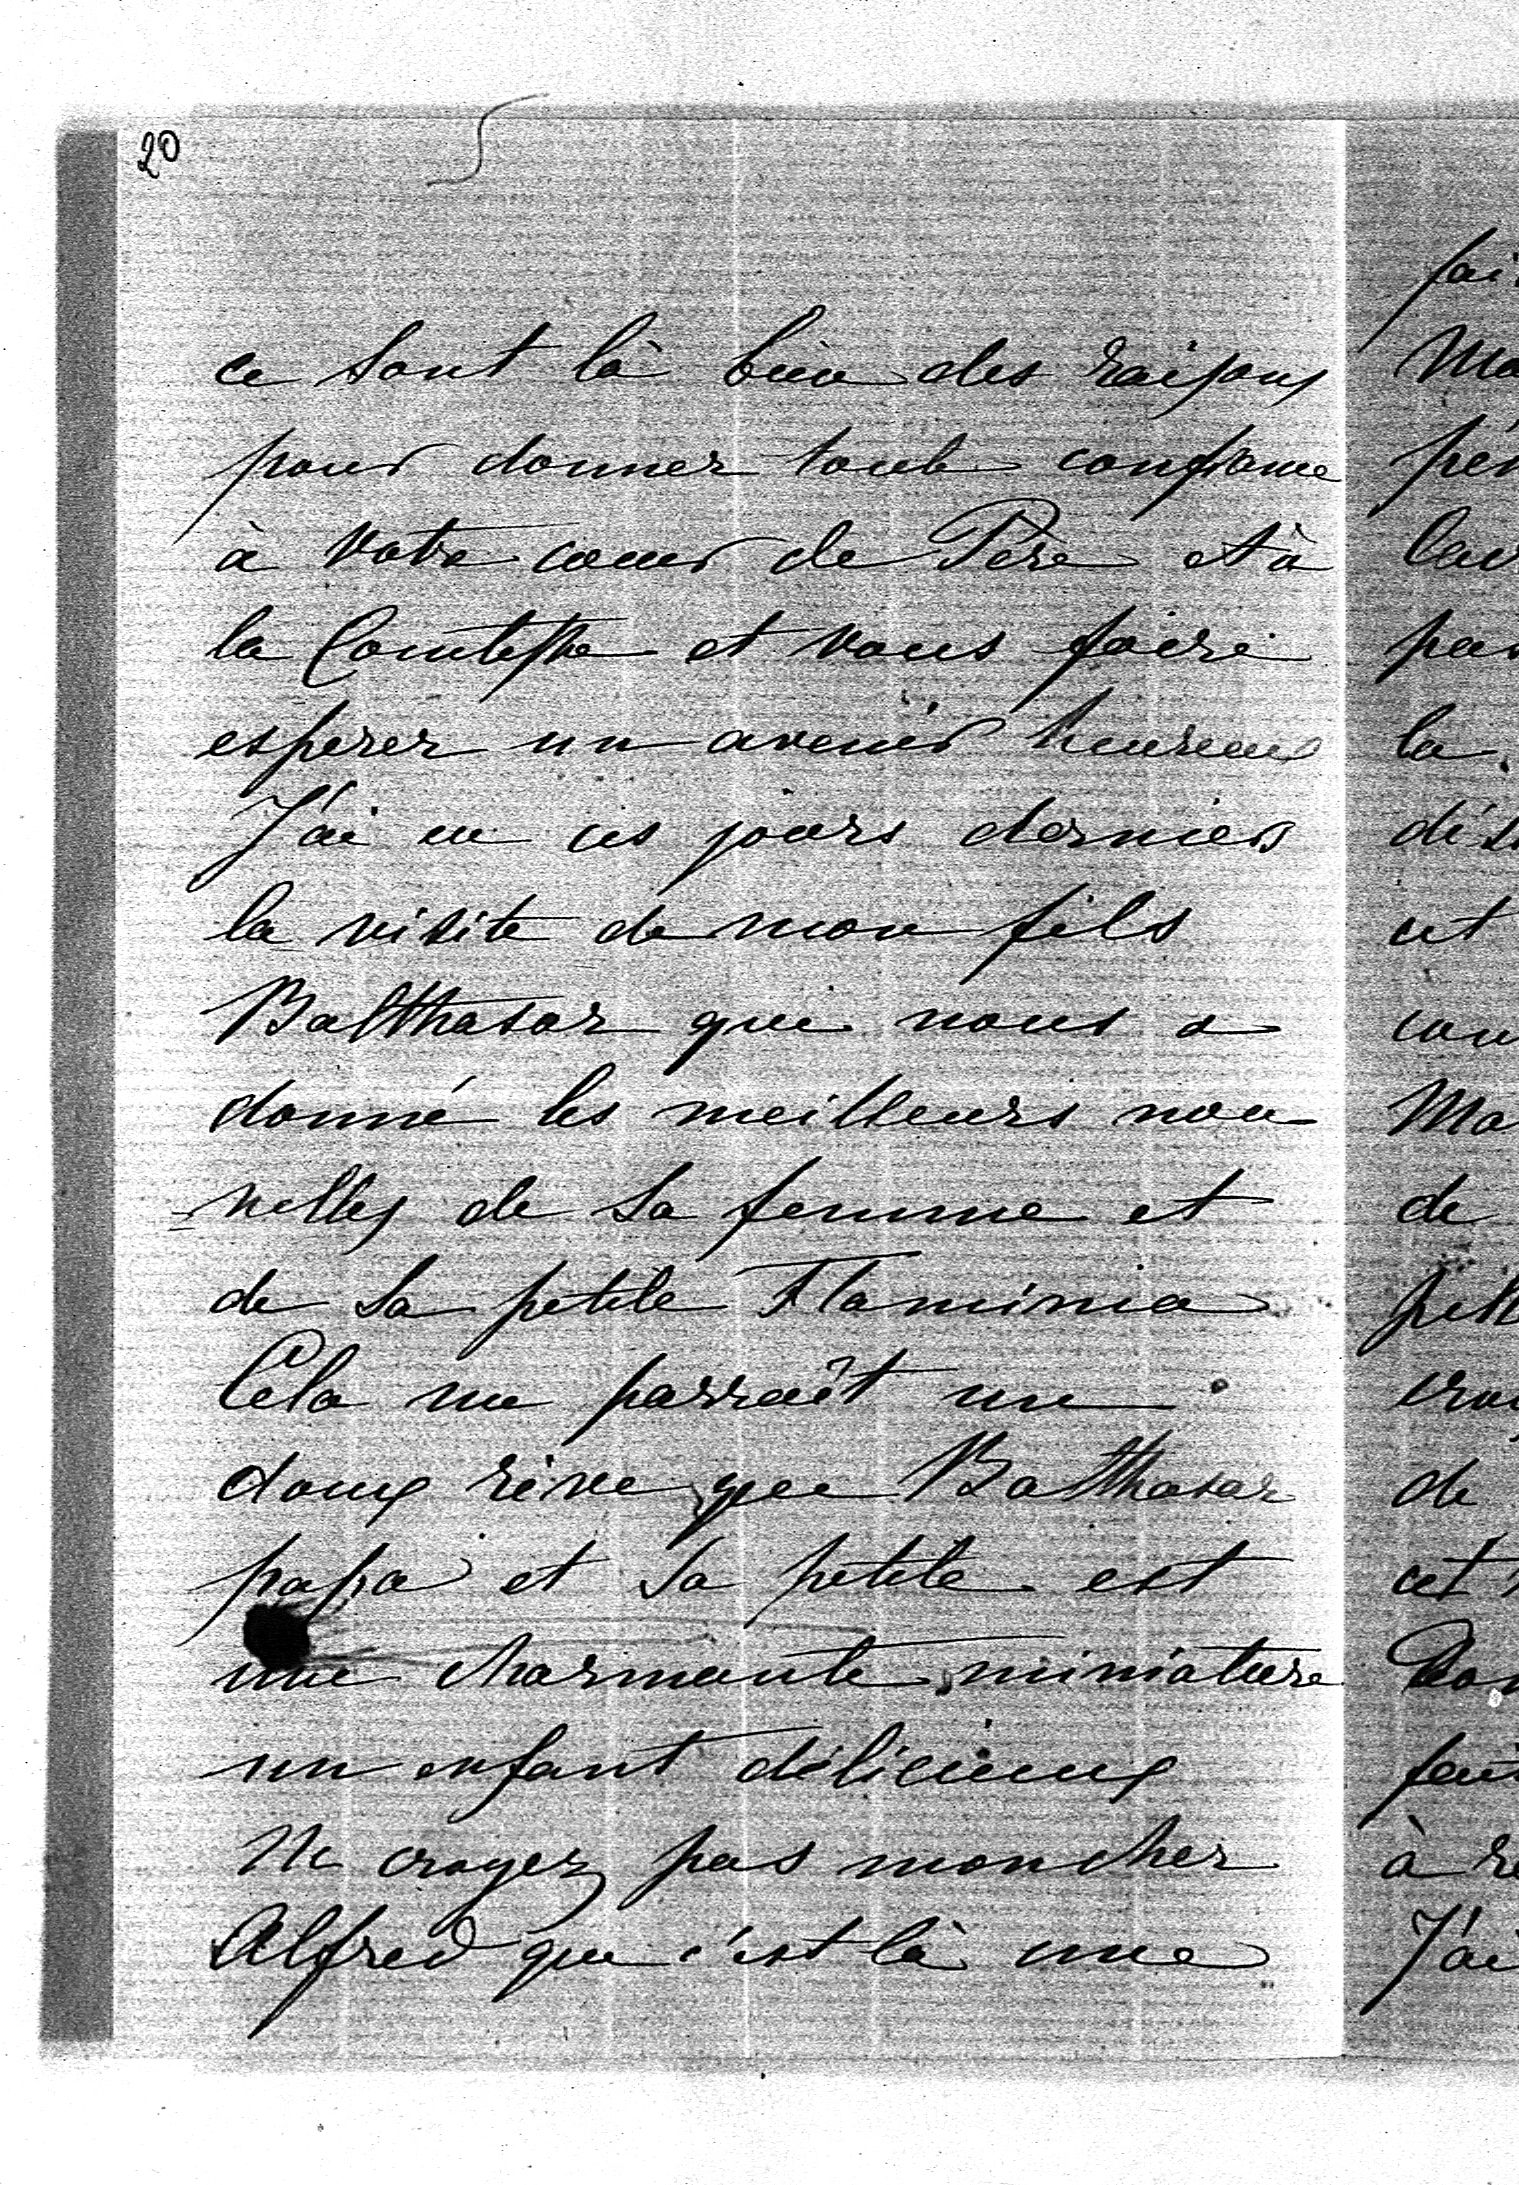 20
ce sont là bien des raisons
pour donner toute confiance
à votre coeur de Père et à
la Comtesse et vous faire
esperer un avenir heureux
J'ai eu ces jours derniers
la visite de mon fils
Balthasar qui nous a
donné les meilleurs nou
=velles de sa femme et
de sa petite Flaminia
Cela me parraît un
doux rêve que Balthasar
papa et sa petite est
une charmante miniature
un enfant délicieux
Ne croyez pas mon cher
Alfred que c'est là une
fai
Ma
pén
leur
pas
la
dés
cet
con
Ma
de
petit
croy
de
cet
Don
fait
à re
J'ai